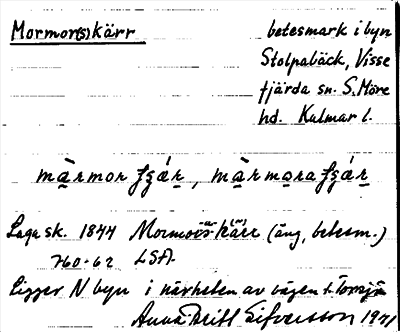 Mormor(s)kärr
betesmark i byn
Stolpabäck, Visse
fjärda sn. S. Möre
hd. Kalmar l.
Laga sk. 1844 Mormors kärr (äng, betesm.)
760-62 LSA.
Ligger N byn i närheten av vägen t. Torsjö
Anna Britt Sifvertsson 1971